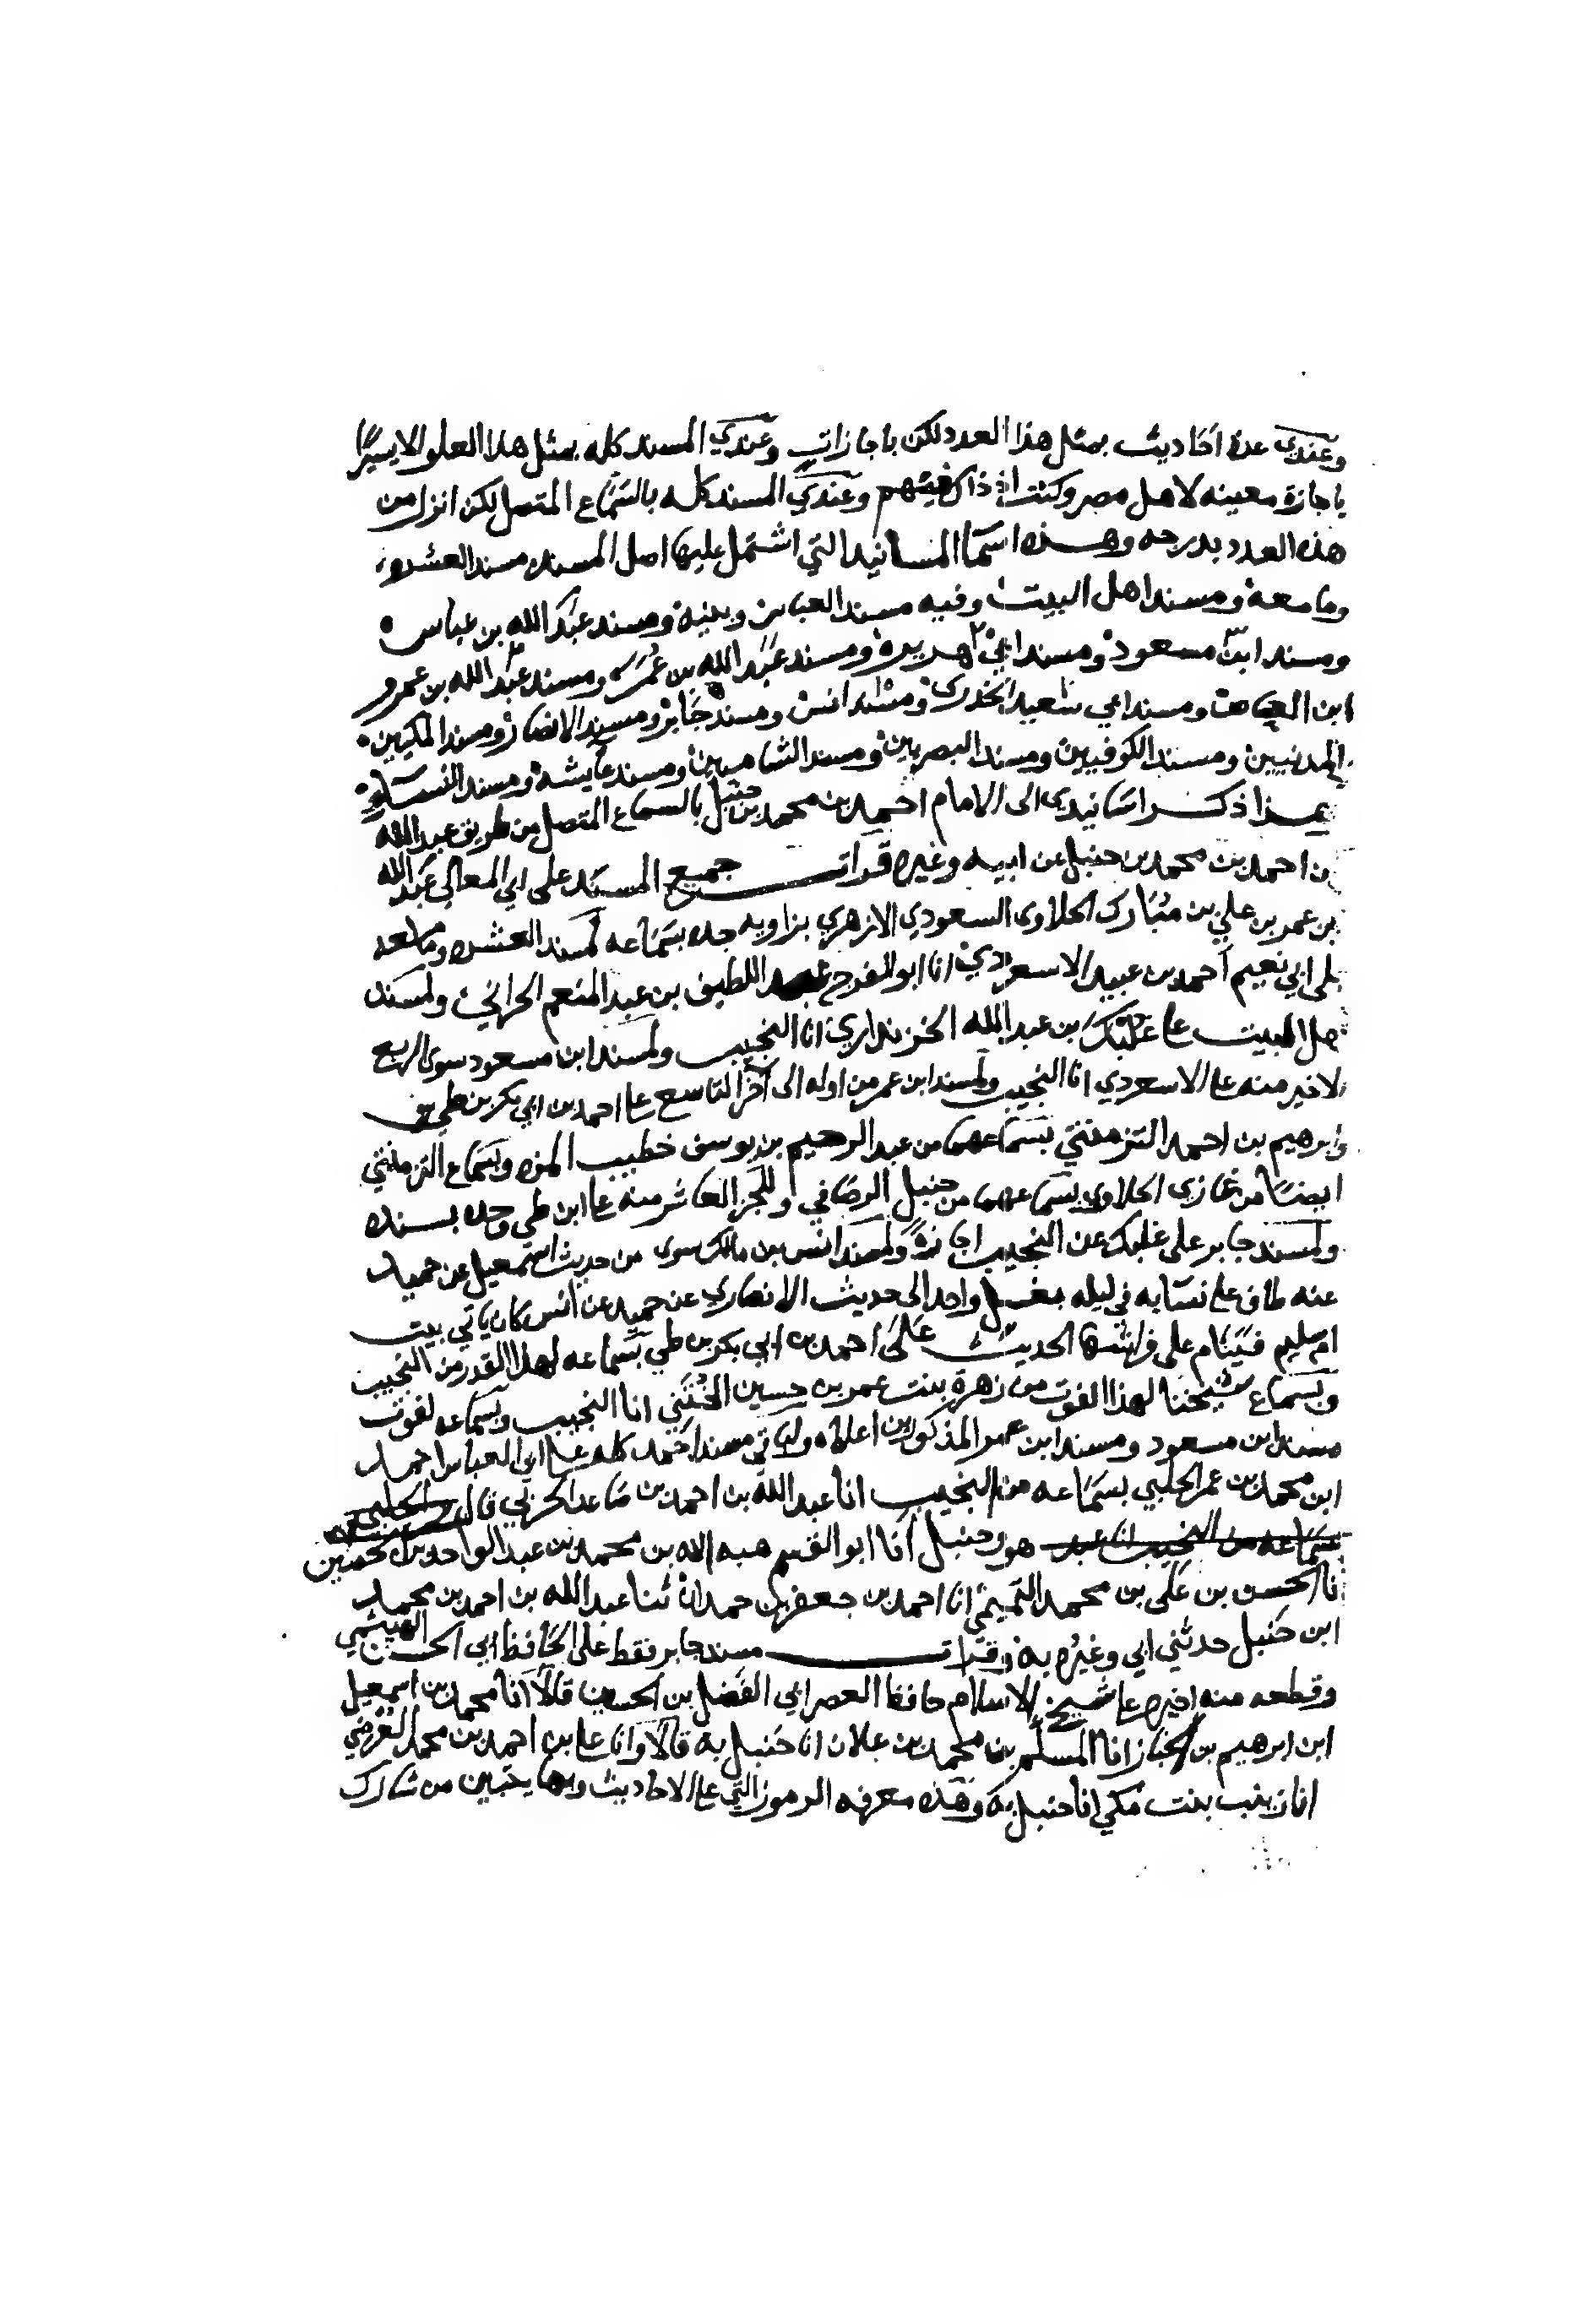 وعندي عدة احاديث بمثل هذا العدد لكن باجازات وعندي المسند كله بمثل هذا العلو الا يسيرا
باجازة معينه لاهل مصر وكنت اذ ذاك فيهم وعندي المسند كله بالسماع المتصل لكن انزل من
هذه العدد بدرجه وهذه اسما المسانيد التي اشتمل عليها اصل المسند مسند العشره
وما معه ومسند اهل البيت وفيه مسند العباس وبنيه ومسند عبد الله بن عباس
ومسند ابن مسعود ومسند ابي هريرة ومسند عبد الله بن عمر ومسند عبد الله بن عمرو
ابن العاص ومسند ابي سعيد الخدري ومسند انس ومسند جابر ومسند الانصار ومسند المكيين
المدنيين ومسند الكوفيين ومسند البصريين ومسند الشاميين ومسند عايشة ومسند النسا
ذكر اسانيدي الى الامام احمد بن محمد بن حنبل بالسماع المتصل من طريق عبد الله
بن احمد بن محمد بن حنبل عن ابيه وغيره قرات جميع المسند على ابي المعالي عبد الله
بن عمر بن علي بن مبارك الحلاوي السعودي الازهري بزاويه جده بسماعه لمسند العشره وما معه
على ابي نعيم احمد بن عبيد الاسعردي انا ابو الفرج عبد اللطيف بن عبد المنعم الحراني ولمسند
اهل البيت على غلبك بن عبد الله الخزنداري انا النجيب ولمسند ابن مسعود سوى الربع
الاخير منه على الاسعردي انا النجيب ولمسند ابن عمر من اوله الى اخر التاسع على احمد بن ابي بكر بن طي
وابرهيم بن احمد التزمنتي بسماعهما من عبد الرحيم بن يوسف خطيب المزه وبسماع التزمنتي
ايضا من غازي الحلاوي بسماعهما من حنبل الرصافي وللجز العاشر منه على ابن طي وحده بسنده
ولمسند جابر على غلبك عن النجيب اجازة ولمسند انس بن مالك سوى من حديث اسمعيل عن حميد
عنه طاف على نسايه في ليله بغسل واحد الى حديث الانصاري عن حميد عن انس كان ياتي بيت
ام سليم فينام على فراشها الحديث على احمد بن ابي بكر بن طي بسماعه لهذا القدر من النجيب
وبسماع شيخنا لهذا الفوت من زهرة بنت عمر بن حسين الختني انا النجيب وبسماعه لفوت
مسند ابن مسعود ومسند ابن عمر المذكورين اعلاه ولباقي مسند احمد كله على ابي العباس احمد
ابن محمد بن عمر الحلبي بسماعه من النجيب انا عبد الله بن احمد بن صاعد الحربي قال الحلبي
بسماعه من النجيب انا عبد هو وحنبل انا ابو القسم هبه الله بن محمد بن عبد الواحد بن الحصين
انا الحسن بن علي بن محمد التميمي انا احمد بن جعفر بن حمدان ثنا عبد الله بن احمد بن محمد
ابن حنبل حدثني ابي وغيره به وقرات مسند جابر فقط على الحافظ ابي الحسن الهيثمي
وقطعه منه اخيره على شيخ الاسلام حافظ العصر ابي الفضل بن الحسين قالا انا محمد بن اسمعيل
ابن ابرهيم بن الخباز انا المسلم بن محمد بن علان انا حنبل به قالا وانا علي بن احمد بن محمد العرضي
انا زينب بنت مكي انا حنبل به وهذه معرفه الرموز التي على الاحاديث وبها يتبين من شارك